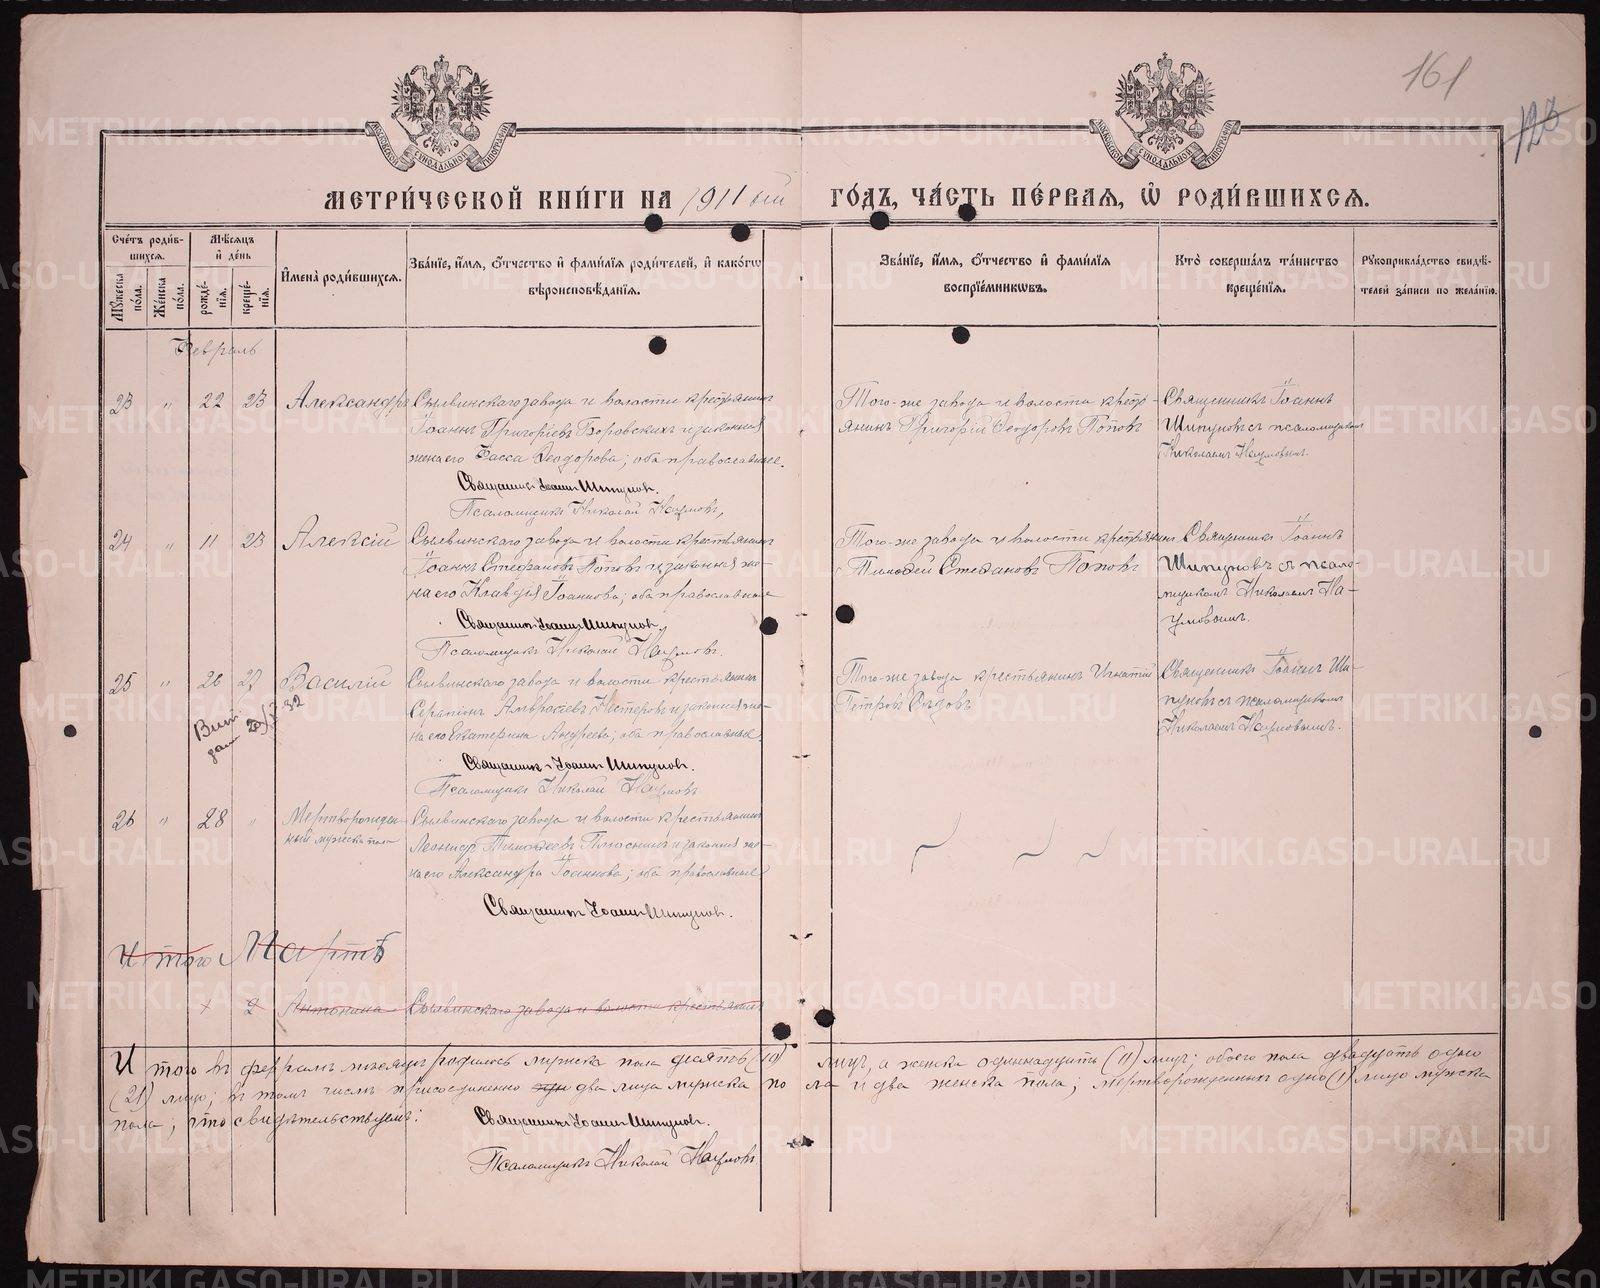 161
123
МЕТРИ́ЧЕСКОЙ КНИ́ГИ НА 1911 ый ГО́ДЪ, ЧА́СТЬ ПЕ́РВАЯ, Ѡ҆ РОДИ́ВШИХСЯ.
Сче́тъ роди́вшихся.
Мꙋжеска по́ла.
Же́нска по́ла.
Мѣ́сяцъ и҆ де́нь
рожде́нїя.
креще́нїя.
И҆мена̀ роди́вшихся.
Зва́нїе, и҆́мя, ѻ҆́тчество и҆ фами́лїя роди́телей, и҆ како́гѡ
вѣроисповѣ́данїя.
Зва́нїе, и҆́мя, ѻ҆́тчество и҆ фами́лїя
воспрїе́мникѡвъ.
Кто̀ соверша́лъ та́инство
креще́нїя.
Рꙋкоприкла́дство свидѣ́-
телей за́писи по жела́нїю.
Февраль
23 " 22 23 Александръ
Сылвинскаго завода и волости крестьянинъ
Іоаннъ Григоріевъ Боровскихъ и законная
жена его Ѳеодорова; оба православные.
Священникъ Іоаннъ Шипуновъ.
Псаломщикъ Николай Наумовъ,
Того-же завода и волости кресть-
янинъ Григорій Ѳеодоровъ Поповъ
Священникъ Іоаннъ
Шипуновъ съ псаломщикомъ
Николаемъ Наумовымъ.
24 " 11 23 Алексій
Сылвинскаго завода и волости крестьянинъ
Іоаннъ Стефановъ Поповъ и законная же-
на его Клавдія Іоаннова; оба православные
Священникъ Іоаннъ Шипуновъ.
Псаломщикъ Николай Наумовъ.
Того-же завода и волости крестьянинъ
Тимофей Стефановъ Поповъ
Священникъ Іоаннъ
Шипуновъ съ псало-
мщикомъ Николаемъ На-
умовымъ.
25 " 26 27 Василій
Вып.
дан 32
Сылвинскаго завода и волости крестьянинъ
Серапіонъ Амвросіевъ Нестеровъ и законная же-
на его Екатерина Андреева; оба православные.
Священникъ Іоаннъ Шипуновъ.
Псаломщикъ Николай Наумовъ
Того-же завода крестьянинъ Игнатій
Петровъ
Священникъ Іоаннъ Ши-
пуновъ съ псаломщикомъ
Николаемъ Наумовымъ.
26 " 28 " Мертворожден-
ный мужска пола
Сылвинскаго завода и волости крестьянинъ
Леонидъ Тимофеевъ и законная же-
на его Александра Іоаннова; оба православные
Священникъ Іоаннъ Шипуновъ.
Итого Мартъ
1 2 Антонина Сылвинскаго завода и волости крестьянинъ
Итого въ февралѣ мѣсяцѣ родилось мужска пола десять (10) лицъ, а женска одиннадцать (11) лицъ; обоего пола двадцать одно
(21) лицо; въ томъ числѣ присоединено два лица мужска пола и два женска пола; мертворожденныхъ одно (1) лицо мужска
пола; что свидѣтельствуемъ:
Священникъ Іоаннъ Шипуновъ.
Псаломщикъ Николай Наумовъ
METRIKI.GASO-URAL.RU